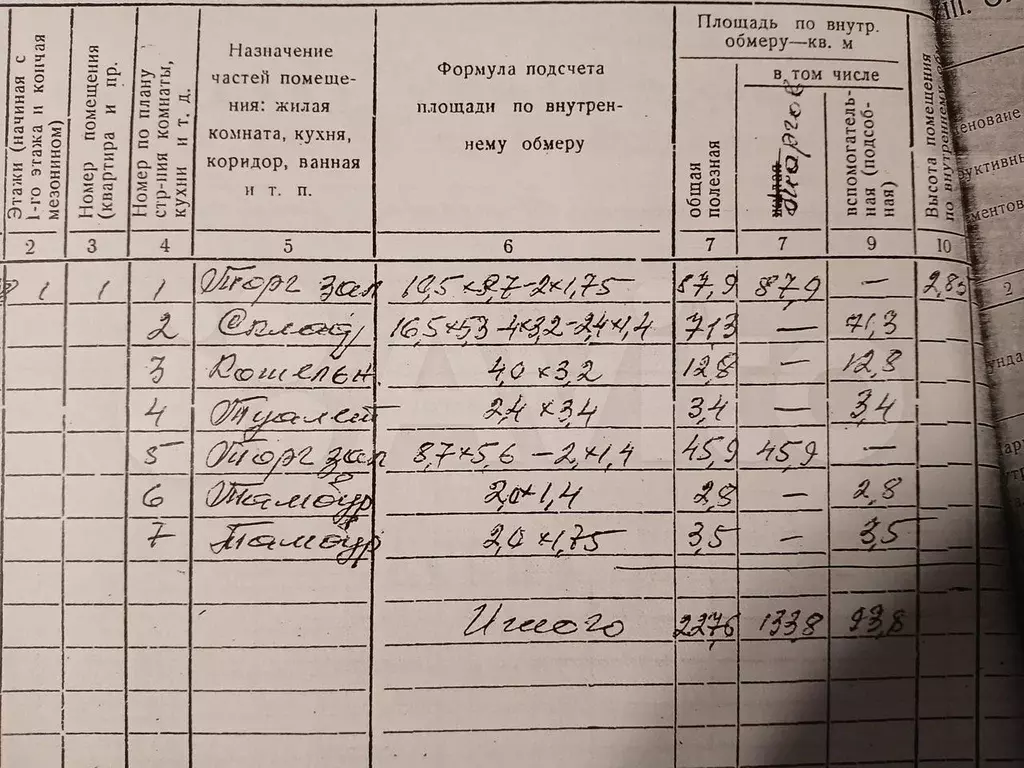 Этажи (начиная с
1-го этажа и кончая
мезонином)
Номер помещения
(квартира и пр.
Номер по плану
стр-ния комнаты,
кухни и т. д.
Назначение
частей помеще-
ния: жилая
комната, кухня,
коридор, ванная
и т. п.
Формула подсчета
площади по внутрен-
нему обмеру
Площадь по внутр.
обмеру—кв. м
общая
полезная
в том числе
вспомогатель-
ная (подсоб-
ная)
Высота помещения
по внутреннему
III.
2 3 4 5 6 7 7 9 10
1 1 1 Торг зал 10,5×8,7-2×1,75 87,9 87,9 — 2,85
2 Склад 16,5×5,3-4×3,2-2,4×1,4 71,3 — 71,3
3 Котельн. 4,0×3,2 12,8 — 12,8
4 Туалет 2,4×3,4 3,4 — 3,4
5 Торг зал 8,7×5,6-2,×1,4 45,9 45,9 —
6 Тамбур 2,0×1,4 2,8 — 2,8
7 Тамбур 2,0×1,75 3,5 — 3,5
Итого 227,6 133,8 93,8